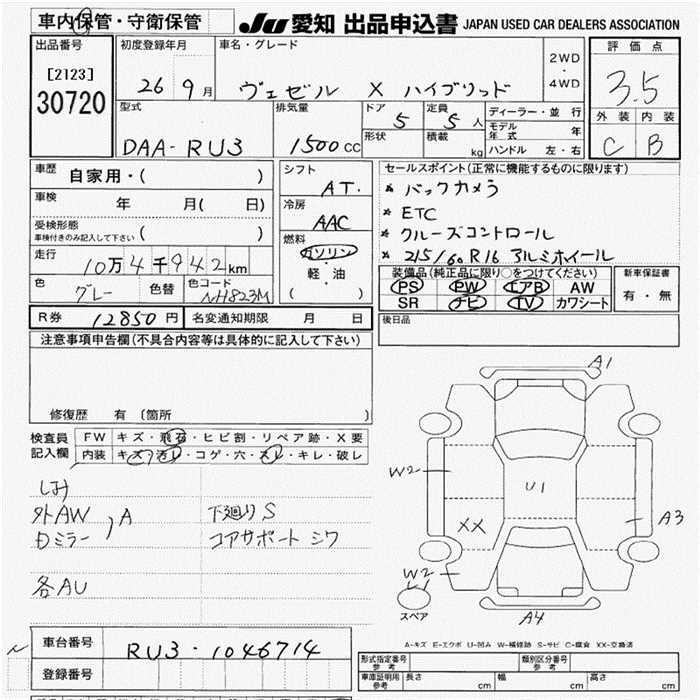 車内保管・守衛保管
JU 愛知 出品申込書 JAPAN USED CAR DEALERS ASSOCIATION
出品番号
[2123]
30720
初度登録年月
26 9月
車名・グレード
ヴェゼル X ハイブリッド
2WD
・
4WD
評価点
3.5
外装 内装
C B
型式
DAA-RU3
排気量
1500CC
ドア
5
形状
定員
5人
積載
kg
ディーラー・並行
モデル年式 年
ハンドル 左・右
車歴
自家用・( )
車検
年 月( 日)
受検形態
車検付きのみ記入して下さい ( )
走行
10万4千942km
色
グレー
色替
色コード
NH823M
シフト
AT.
冷房
AAC
燃料
ガソリン
・
軽・油
( )
セールスポイント(正常に機能するものに限ります)
* バックカメラ
* ETC
* クルーズコントロール
* 215/60R16 アルミホイール
装備品(純正品に限り○をつけてください)
PS PW エアB AW
SR ナビ TV カワシート
新車保証書
有・無
R券 12850円
名変通知期限 月 日
後日品
注意事項申告欄(不具合内容等は具体的に記入して下さい)
修復歴 有 (箇所 )
検査員
記入欄
FW キズ・飛石・ヒビ割・リペア跡・X要
内装 キズ・汚レ・コゲ・穴・スレ・キレ・破レ
外AW
Dミラー , A
各AU
下廻りS
コアサポート シワ
A1
W2
U1
XX
A3
W2
A4
スペア
A-キズ E-エクボ U-凹み W-補修跡 S-サビ C-腐食 XX-交換済
車台番号
RU3-1046714
登録番号
形式指定番号
参考
類別区分番号
参考
車庫証明用
参考
長さ cm
幅 cm
高さ cm